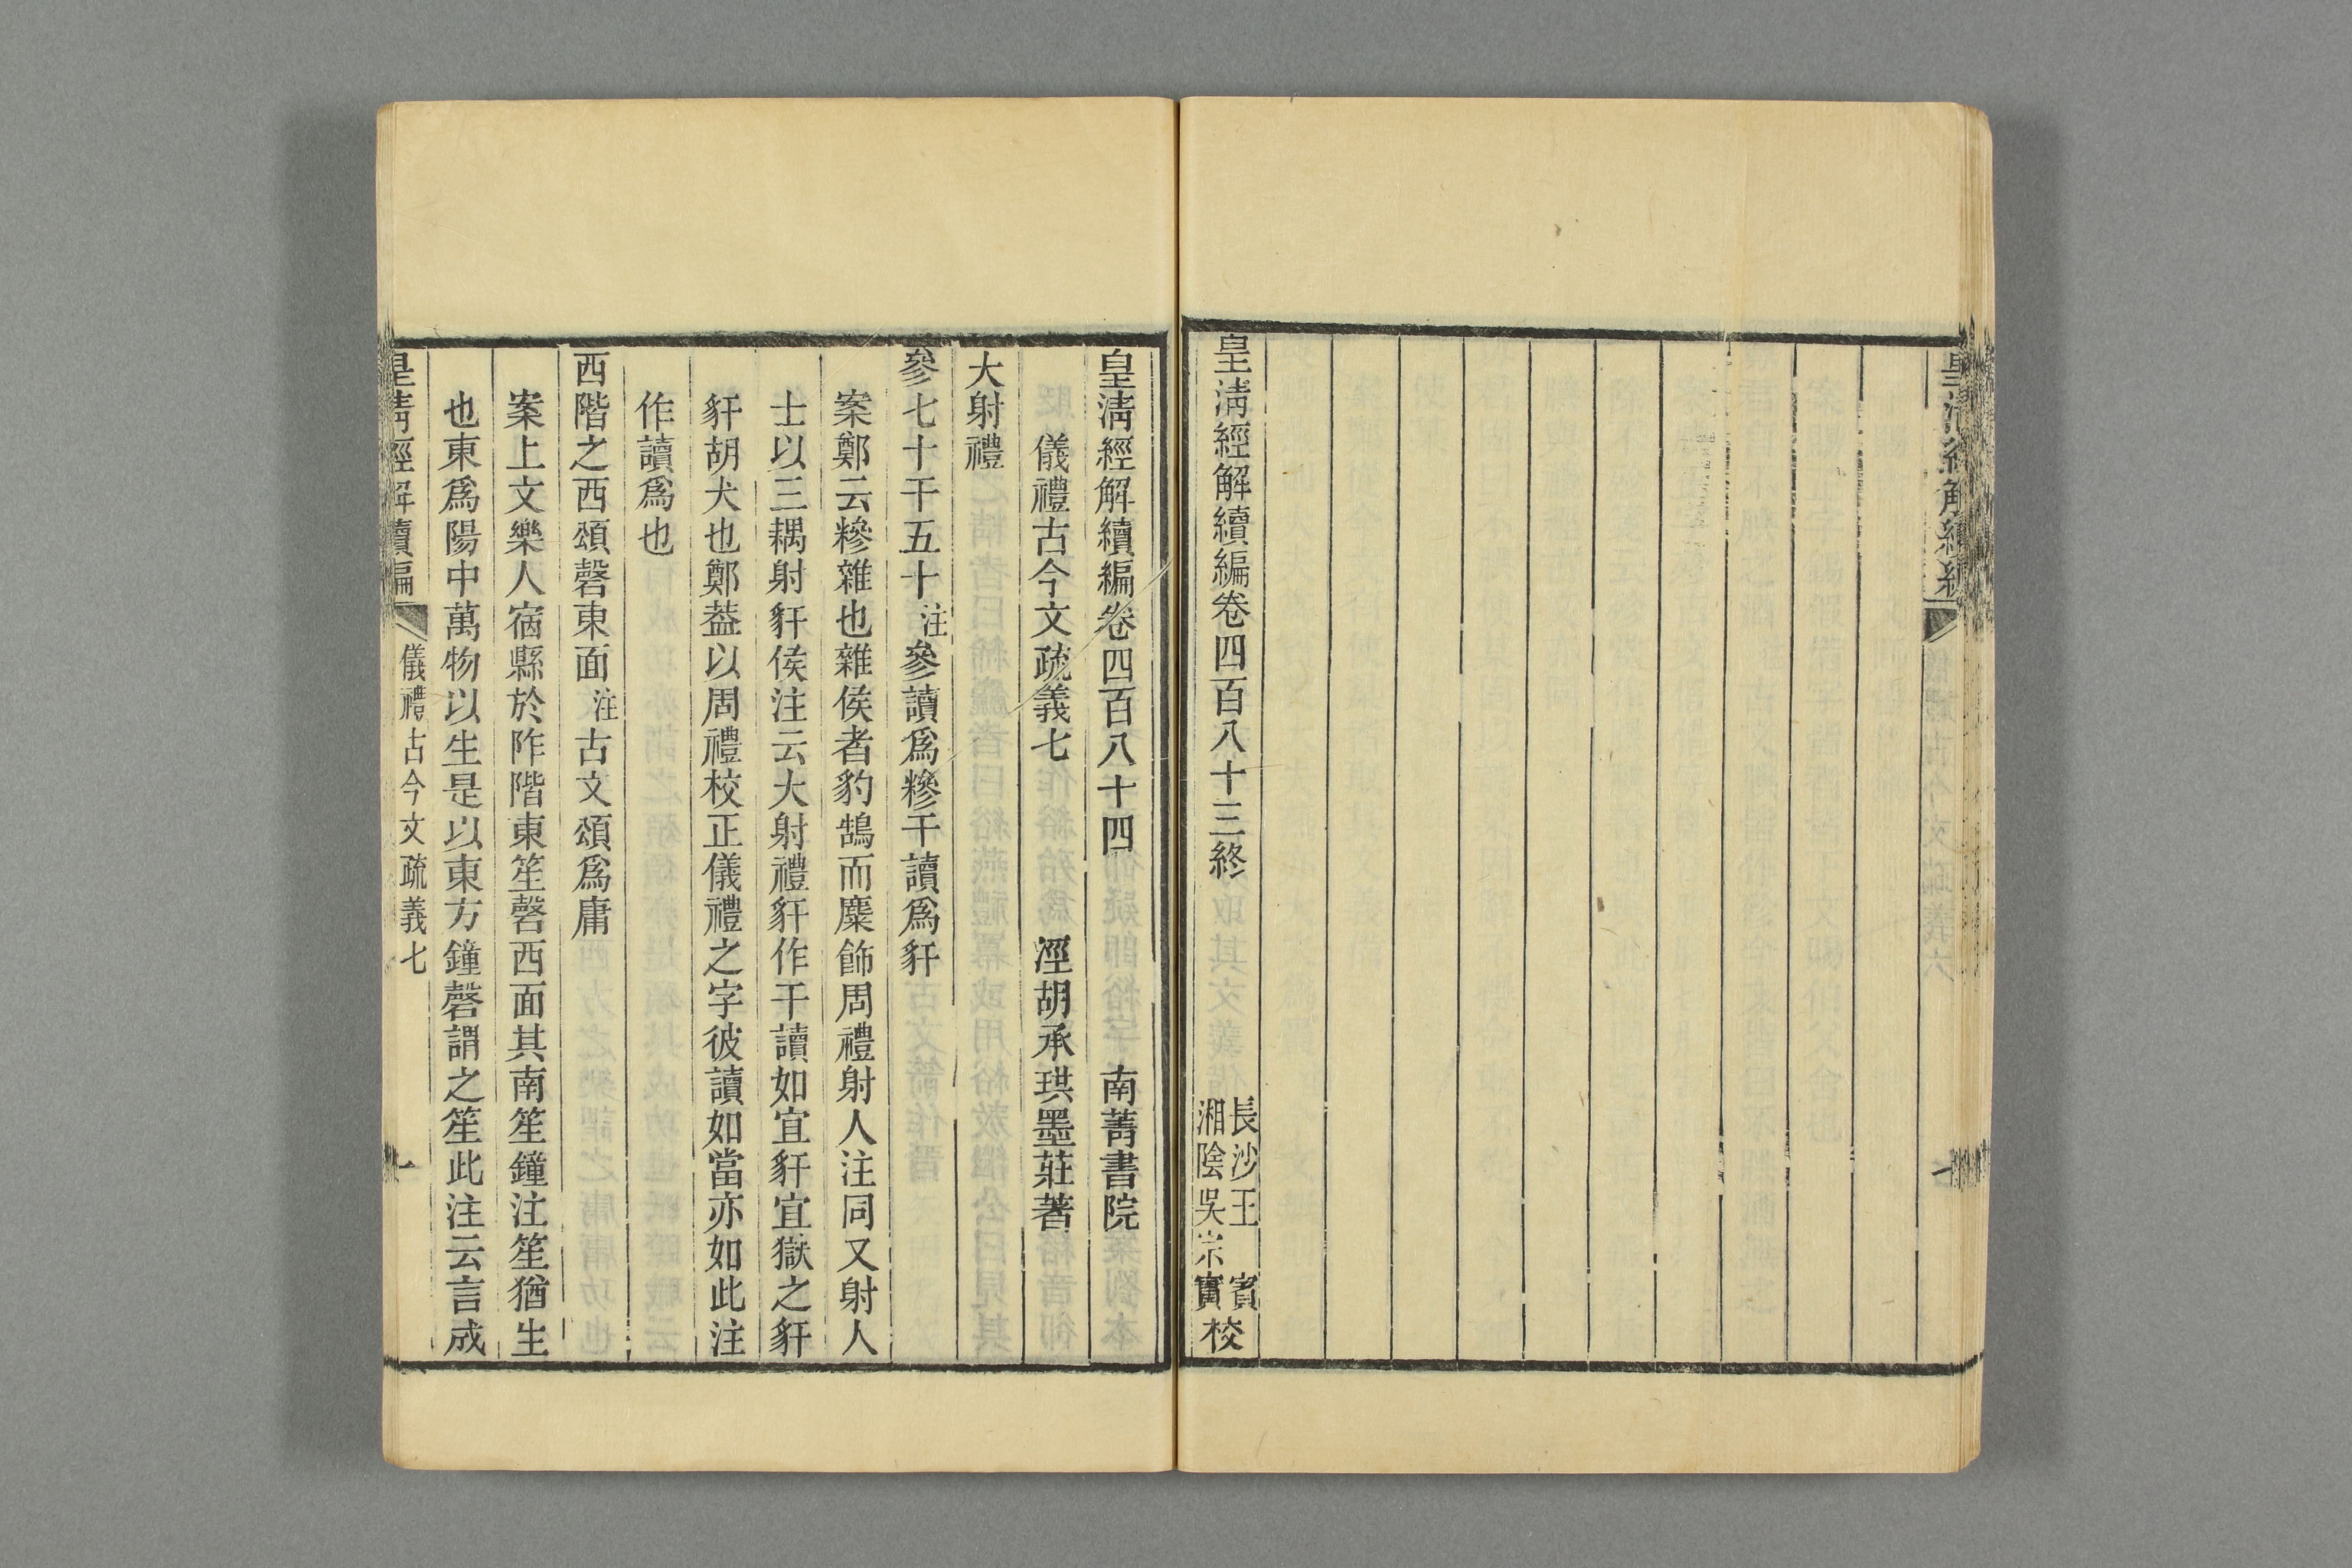 皇清經解續編卷四百八十三終
長沙王 賓
湘陰吳宗實校
皇清經解續編卷四百八十四 南菁書院
儀禮古今文疏義七 涇胡承珙墨莊著
大射禮
參七十干五十注參讀爲糝干讀爲豻
案鄭云糝雜也雜侯者豹鵠而麋飾周禮射人注同又射人
士以三耦射豻侯注云大射禮豻作干讀如宜豻宜獄之豻
豻胡犬也鄭葢以周禮校正儀禮之字彼讀如當亦如此注
作讀爲也
西階之西頌磬東面注古文頌爲庸
案上文樂人宿縣於阼階東笙磬西面其南笙鐘注笙猶生
也東爲陽中萬物以生是以東方鐘磬謂之笙此注云言成
皇清經解續編 儀禮古今文疏義七 一